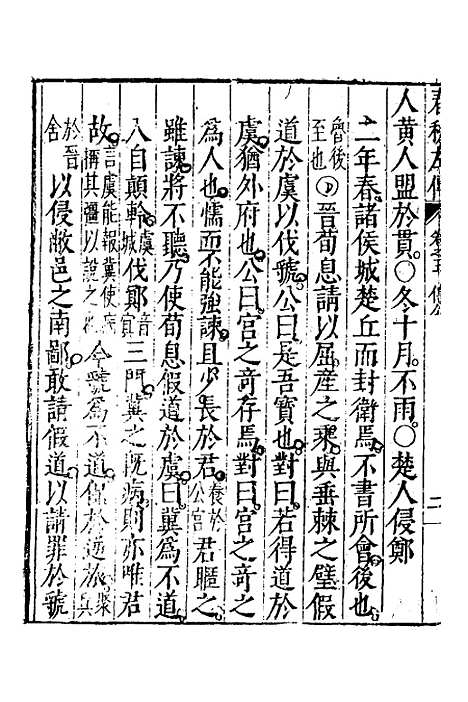 人黄人盟於貫〇冬十月不雨〇楚人侵鄭
二年春諸侯城楚丘而封衛焉不書所會後也
魯後至也晉荀息請以屈産之乘與垂棘之璧假
道於虞以伐虢公曰是吾寶也對曰若得道於
虞猶外府也公曰宮之奇存焉對曰宮之奇之
爲人也懦而不能強諫且少長於君養於公宮君暱之
雖諫將不聽乃使荀息假道於虞曰冀爲不道
入自顛軨虞城伐鄍音冥三門冀之既病則亦唯君
故言虞能報冀使病稱其彊以說之今虢爲不道保於逆旅聚
於晉舍以侵敝邑之南鄙敢請假道以請罪於虢